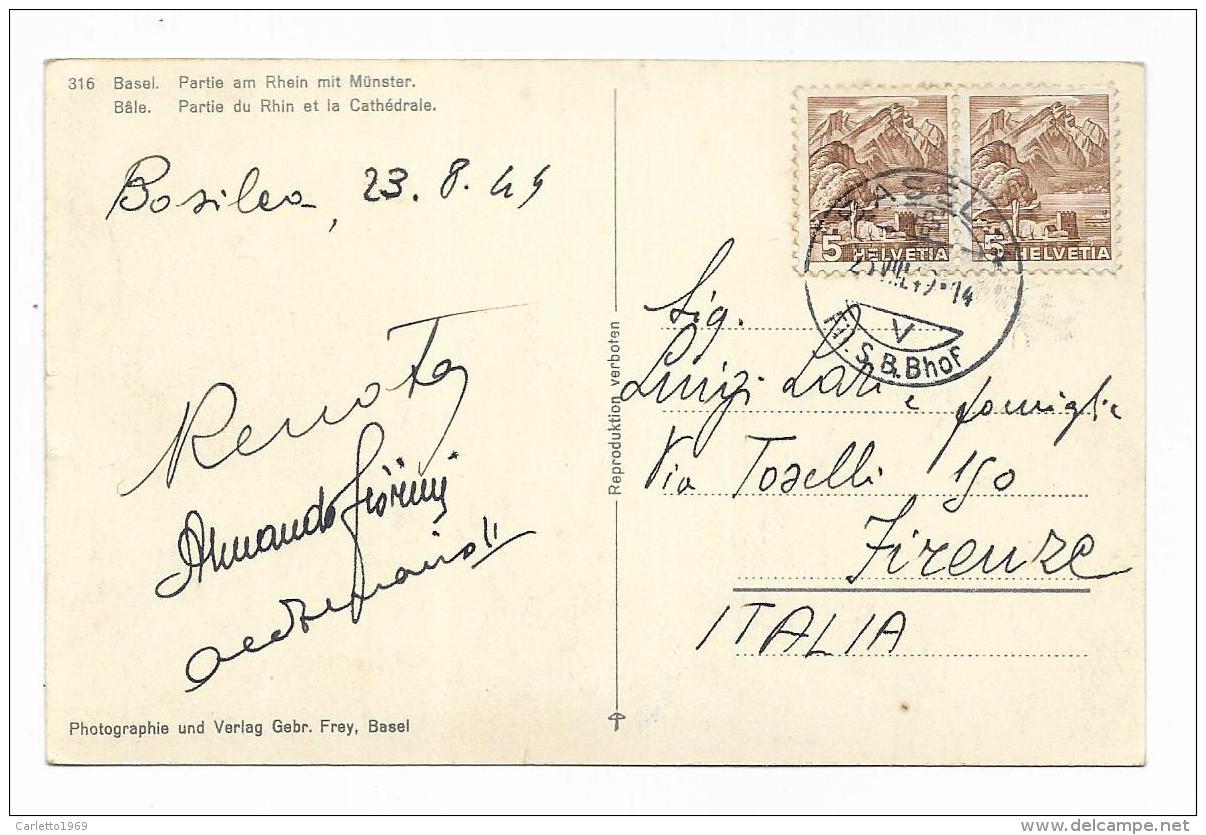 316 Basel. Partie am Rhein mit Münster.
Bâle. Partie du Rhin et la Cathédrale.
Basilea, 23.8.49
Renata
Armando
Photographie und Verlag Gebr. Frey, Basel
Reproduktion verboten
5 HELVETIA
5 HELVETIA
BASEL
V
Fil. S.B.Bhof
Sig.
Luigi Lari e famiglia
Via Toselli 150
Firenze
ITALIA
Carletto1969
www.delcampe.net